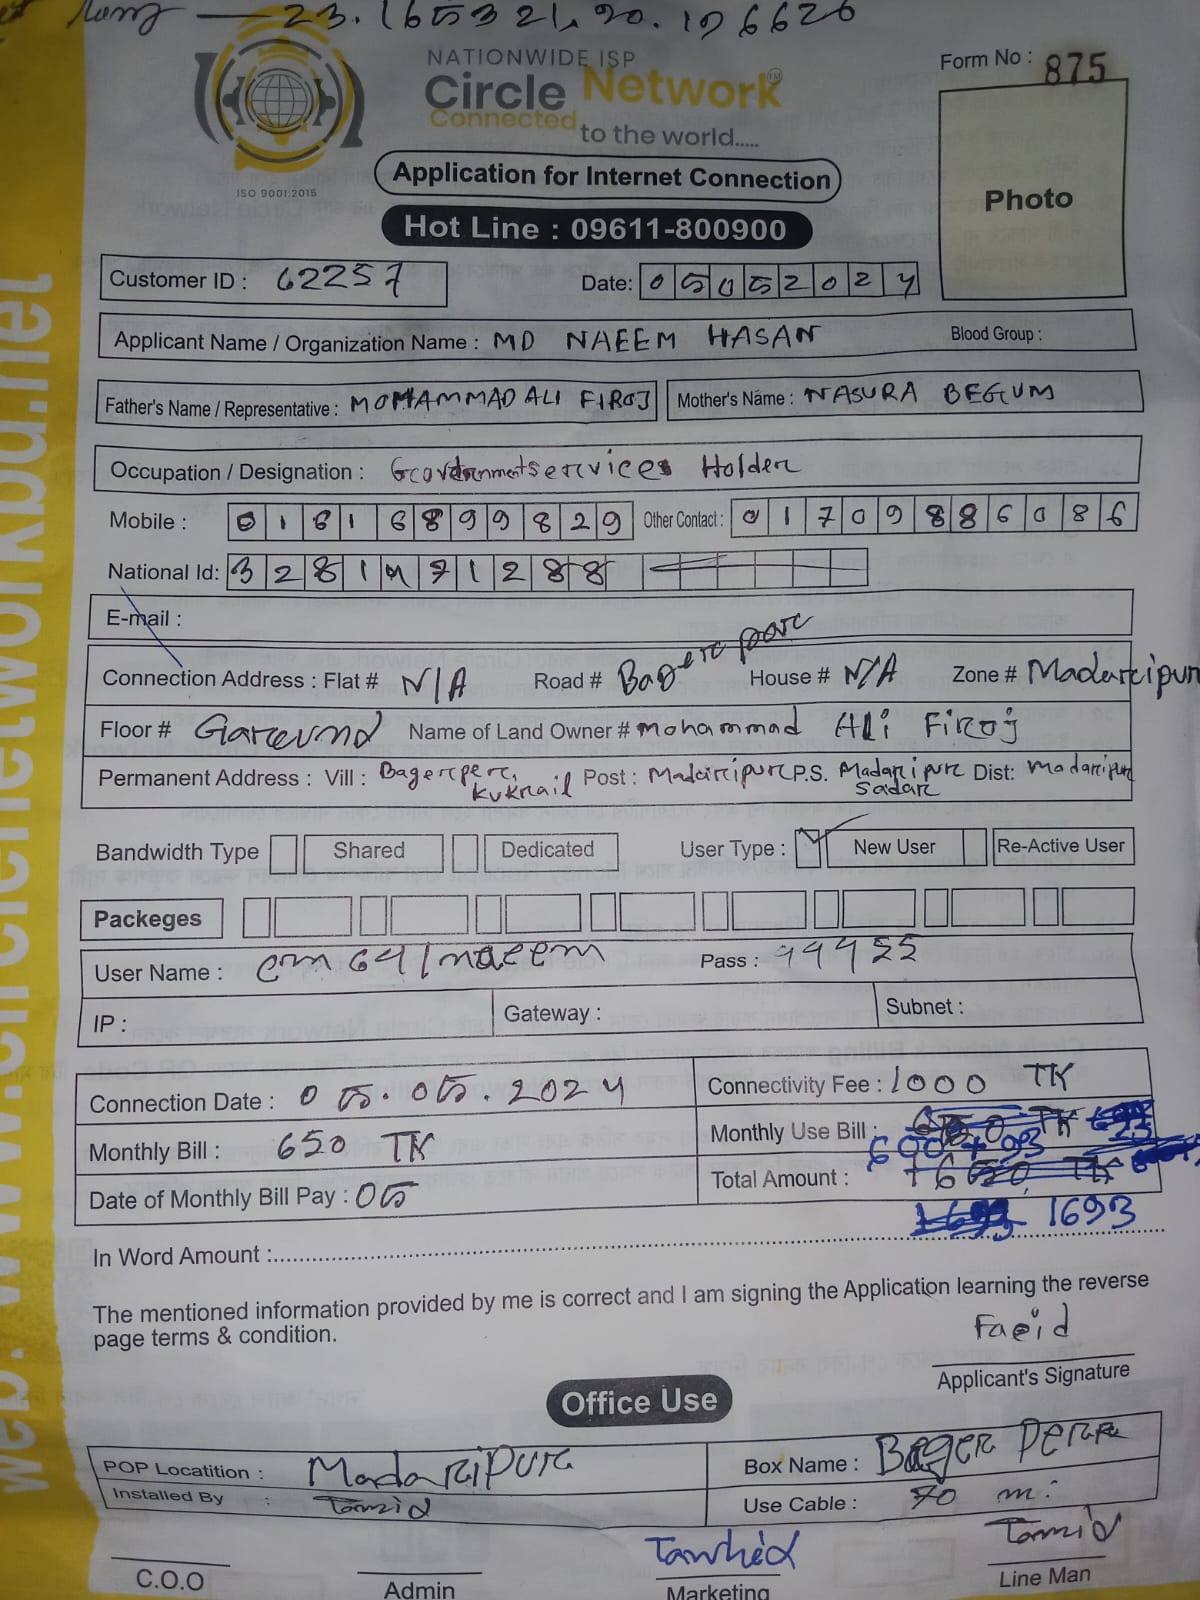 Long — 23.165321,90.196626
NATIONWIDE ISP
Circle Network™
Connected to the world.....
ISO 9001:2015
Form No : 875
Photo
Application for Internet Connection
Hot Line : 09611-800900
Customer ID : 62257 Date: 05052024
Applicant Name / Organization Name : MD NAEEM HASAN Blood Group :
Father's Name / Representative : MOHAMMAD ALI FIROJ Mother's Name : NASURA BEGUM
Occupation / Designation : Government services Holder
Mobile : 01616899829 Other Contact : 01709886086
National Id: 3281471288
E-mail :
Connection Address : Flat # N/A Road # Bager par House # N/A Zone # Madaripur
Floor # Garound Name of Land Owner # Mohammad Ali Firoj
Permanent Address : Vill : Bagerper, kukrail Post : Madaripur P.S. Madaripur Sadar Dist: Madaripur
Bandwidth Type Shared Dedicated User Type : New User Re-Active User
Packeges
User Name : cm641naeem Pass :
IP : Gateway : Subnet :
Connection Date : 05.05.2024 Connectivity Fee : 1000 TK
Monthly Bill : 650 TK Monthly Use Bill : 600 + 93
Date of Monthly Bill Pay : 05 Total Amount : 1693
In Word Amount :
The mentioned information provided by me is correct and I am signing the Application learning the reverse
page terms & condition.
Applicant's Signature
Office Use
POP Locatition : Madaripur Box Name : Bager Perr
Installed By : Tamid Use Cable : 70 m:
Tawhid Tamid
C.O.O Admin Marketing Line Man
web: www.circlenetworkbd.net